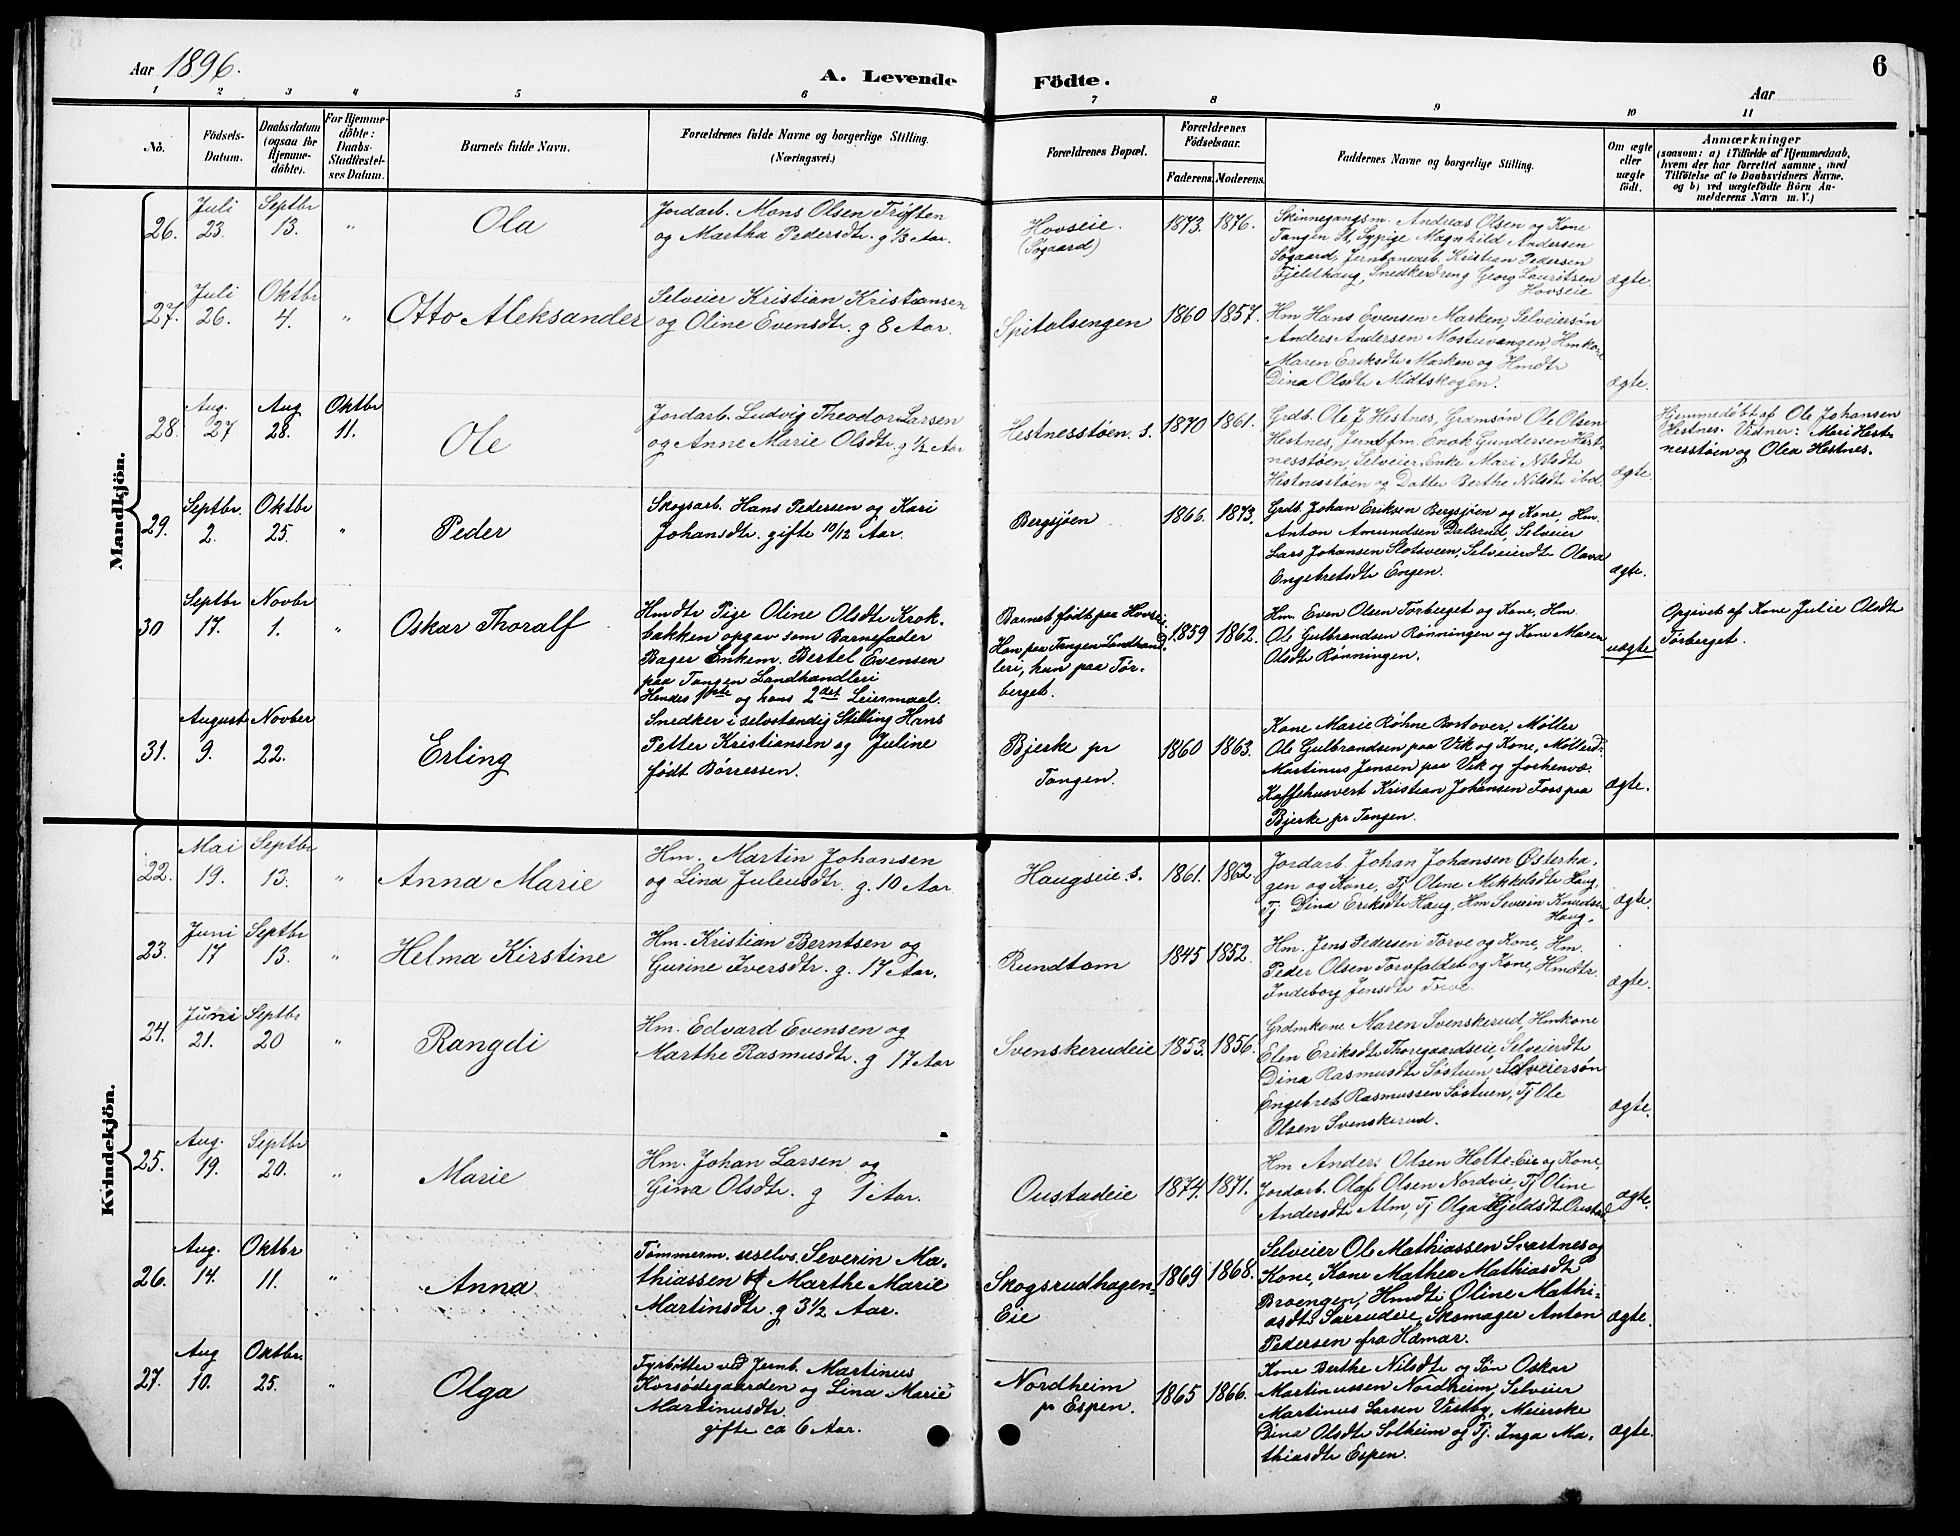 Aar 1896.
A. Levende Födte.
6
Aar
1 2 3 4 5 6 7 8 9 10 11
No.
Födsels-
Datum.
Daabsdatum
(ogsaa for
Hjemme-
döbte).
For Hjemme-
döbte:
Daabs-
Stadfæstel-
ses Datum.
Barnets fulde Navn.
Forældrenes fulde Navne og borgerlige Stilling.
(Næringsvei.)
Forældrenes Bopæl.
Forældrenes
Födselsaar.
Faderens. Moderens.
Faddernes Navne og borgerlige Stilling.
Om ægte
eller
uægte
født.
Anmærkninger
(saasom: a) i Tilfælde af Hjemmedaab,
hvem der har forrettet samme, med
Tilföielse af to Daabsvidners Navne,
og b) ved uægtefödte Börn An-
melderens Navn m. V.)
Mandkjön.
26. Juli 23. Septbr 13. " Ola
Jordarb. Mons Olsen Trøften
og Martha Pedersdtr. g 1/3 Aar.
Hovseie.
(Søgaard)
1873. 1876.
Skinnegangsm. Andreas Olsen og Kone
Tangen St, Sypige Magnhild Andersen
Søgaard, Jernbanearb. Kristian Pedersen
Fjeldhaug, Snedkerdreng Georg Lauritsen
Hovseie
ægte.
27. Juli 26. Oktbr 4. " Otto Aleksander
Selveier Kristian Kristiansen
og Oline Evensdtr. g 8 Aar.
Spitalsengen
1860 1857.
Hm Hans Evensen Marken, Selveiersøn
Anders Andersen Mostuvangen, Hmkone
Maren Eriksdtr Marken og Hmdtr
Dina Olsdtr Midtskogen.
ægte.
28. Aug. 27 Aug 28. Oktbr 11. Ole
Jordarb. Ludvig Theodor Larsen
og Anne Marie Olsdtr. g 1/2 Aar
Hestnesstøen. s.
1870 1861.
Grdb. Ole J Hestnes, Grdmsøn Ole Olsen
Hestnes, Jernbfm. Enok Gundersen Hest-
nesstøen, Selveier Enke Mari Nilsdtr
Hestnesstøen og Datter Berthe Nilsdtr ibd.
ægte.
Hjemmedøbt af Ole Johansen
Hestnes. Vidner: Mari Hest-
nesstøen og Olea Hestnes.
29. Septbr. 2. Oktbr 25. " Peder
Skogsarb. Hans Pedersen og Kari
Johansdtr. gifte 10/12 Aar.
Bergsjøen
1866. 1873.
Grdb. Johan Eriksen Bergsjøen og Kone, Hm.
Anton Amundsen Dalsrud, Selveier
Lars Johansen Slotsveen, Selveierdtr Olava
Engebretsdtr Engen.
ægte.
30 Septbr 17. Novbr 1. " Oskar Thoralf
Hmdtr Pige Oline Olsdtr Krok-
bakken opgav som Barnefader
Bager Enkem. Bertel Evensen
paa Tangen Landhandleri
Hendes 1ste og hans 2det Leiermaal.
Barnet født paa Hovseie.
Han paa Tangen Landhand-
leri, hun paa Tør-
berget.
1859 1862.
Hm. Even Olsen Torberget og Kone, Hm.
Ole Gulbrandsen Rønningen og Kone Maren
Olsdtr Rønningen.
uægte
Opgivet af Kone Julie Olsdtr
Torberget.
31. August 9. Novber 22. Erling
Snedker i selvstændig Stilling Hans
Petter Kristiansen og Juline
født Børressen.
Bjerke pr
Tangen.
1860 1863.
Kone Marie Røhne Bostover, Møller
Ole Gulbrandsen paa Vik og Kone, Møllerd.
Martinus Jensen paa Vik og forhenvæ.
Kaffehusvert Kristian Johansen Foss paa
Bjerke pr Tangen.
ægte.
Kvindekjön.
22. Mai 19. Septbr 13. " Anna Marie
Hm. Martin Johansen
og Lina Juleusdtr. g. 10 Aar
Haugseie. s.
1861. 1862.
Jordarb. Johan Johansen Østerha-
gen og Kone, Tj Oline Mikkelsdtr Haug,
Tj Dina Eriksdtr Haug, Hm Severin Knudsen
Haug.
ægte.
23. Juni 17 Septbr 13. " Helma Kirstine
Hm. Kristian Berntsen og
Gurine Iversdtr. g. 17 Aar.
Rundtom
1845 1852.
Hm. Jens Pedersen Torve og Kone, Hm.
Peder Olsen Torvfaldet og Kone, Hmdtr
Indeborg Jensdtr Torve.
ægte.
24. Juni 21. Septbr 20 " Rangdi
Hm. Edvard Evensen og
Marthe Rasmusdtr. g 17 Aar
Svenskerudeie
1853. 1856.
Grdmkone Maren Svenskerud, Hmkone
Elen Eriksdtr Thoregaardseie, Selveierdtr
Dina Rasmusdtr Søstuen, Selveiersøn
Engebret Rasmussen Søstuen, Tj Ole
Olsen Svenskerud.
ægte.
25. Aug. 19. Septbr 20. " Marie
Hm. Johan Larsen og
Gina Olsdtr. g 1 Aar.
Oustadeie
1874. 1871.
Hm Anders Olsen Holte-Eie og Kone,
Jordarb. Olaf Olsen Nordvie, Tj Oline
Andersdtr Alm, Tj Olga Kjeldsdtr Oustad
ægte.
26. Aug. 14. Oktbr 11. " Anna
Tømmerm. uselvs. Severin Ma-
thiassen og Marthe Marie
Martinsdtr. g 3 1/2 Aar.
Skogsrudhagen-
Eie
1869 1868.
Selveier Ole Mathiassen Svartnes og
Kone, Kone Mathea Mathiasdtr
Broengen, Hmdtr Oline Mathi-
asdtr Sørrudeie, Skomager Anton
Pedersen fra Hamar.
ægte.
27. Aug 10. Oktbr. 25. " Olga
Fyrbøtter ved Jernb. Martinus
Korsødegaarden og Lina Marie
Martinusdtr.
gifte ca 6 Aar.
Nordheim
pr Espen.
1865 1866.
Kone Berthe Nilsdtr og Søn Oskar
Martinussen Nordheim, Selveier
Martinus Larsen Vestby, Meierske
Dina Olsdtr Solheim og Tj. Inga Ma-
thiasdtr Espen.
ægte.